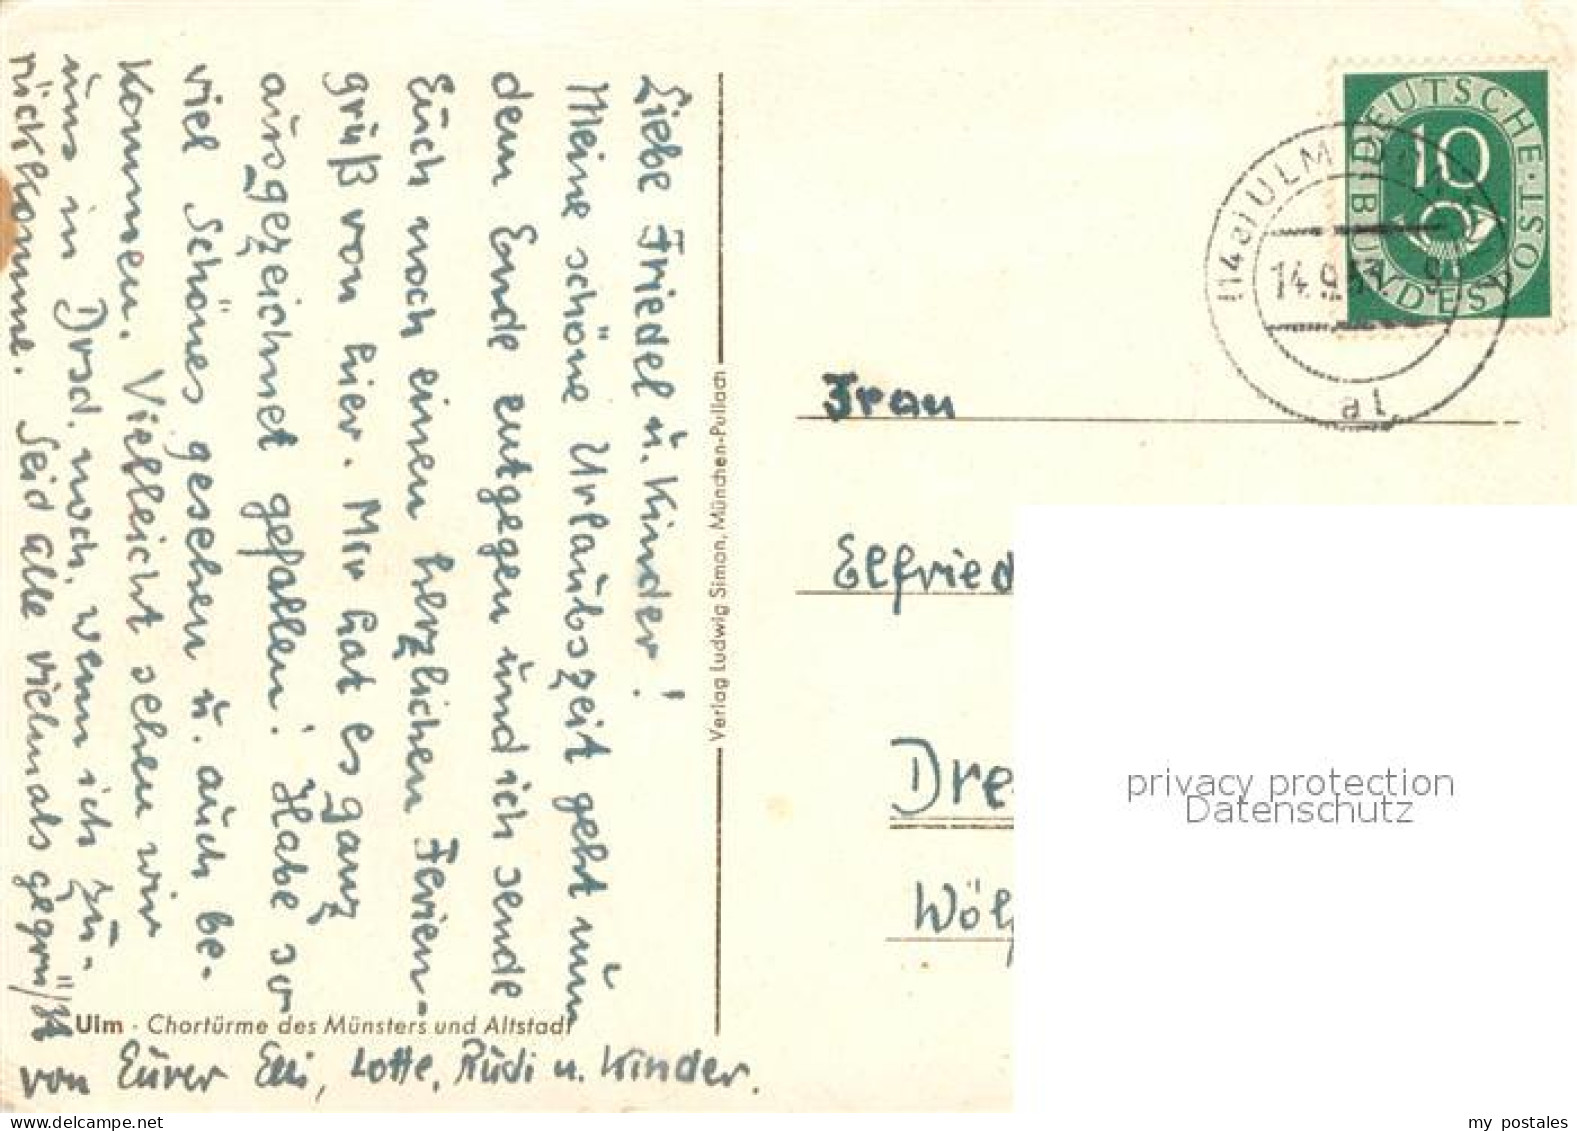 Liebe Friedel u. Kinder!
Meine schöne Urlaubszeit geht nun
dem Ende entgegen und ich sende
Euch noch einen herzlichen Ferien-
gruß von hier. Mir hat es ganz
ausgezeichnet gefallen! Habe so
viel Schönes gesehen u. auch be-
kommen. Vielleicht sehen wir
uns in Drsd. noch, wenn ich zu-
rückkomme. Seid alle vielmals gegrüßt
von Eurer Elli, Lotte, Rudi u. Kinder.
Ulm · Chortürme des Münsters und Altstadt
Verlag Ludwig Simon, München-Pullach
DEUTSCHE BUNDESPOST
10
(14a) ULM
14.9.
a1
Frau
Elfried
Dre
Wöl
privacy protection
Datenschutz
my postales